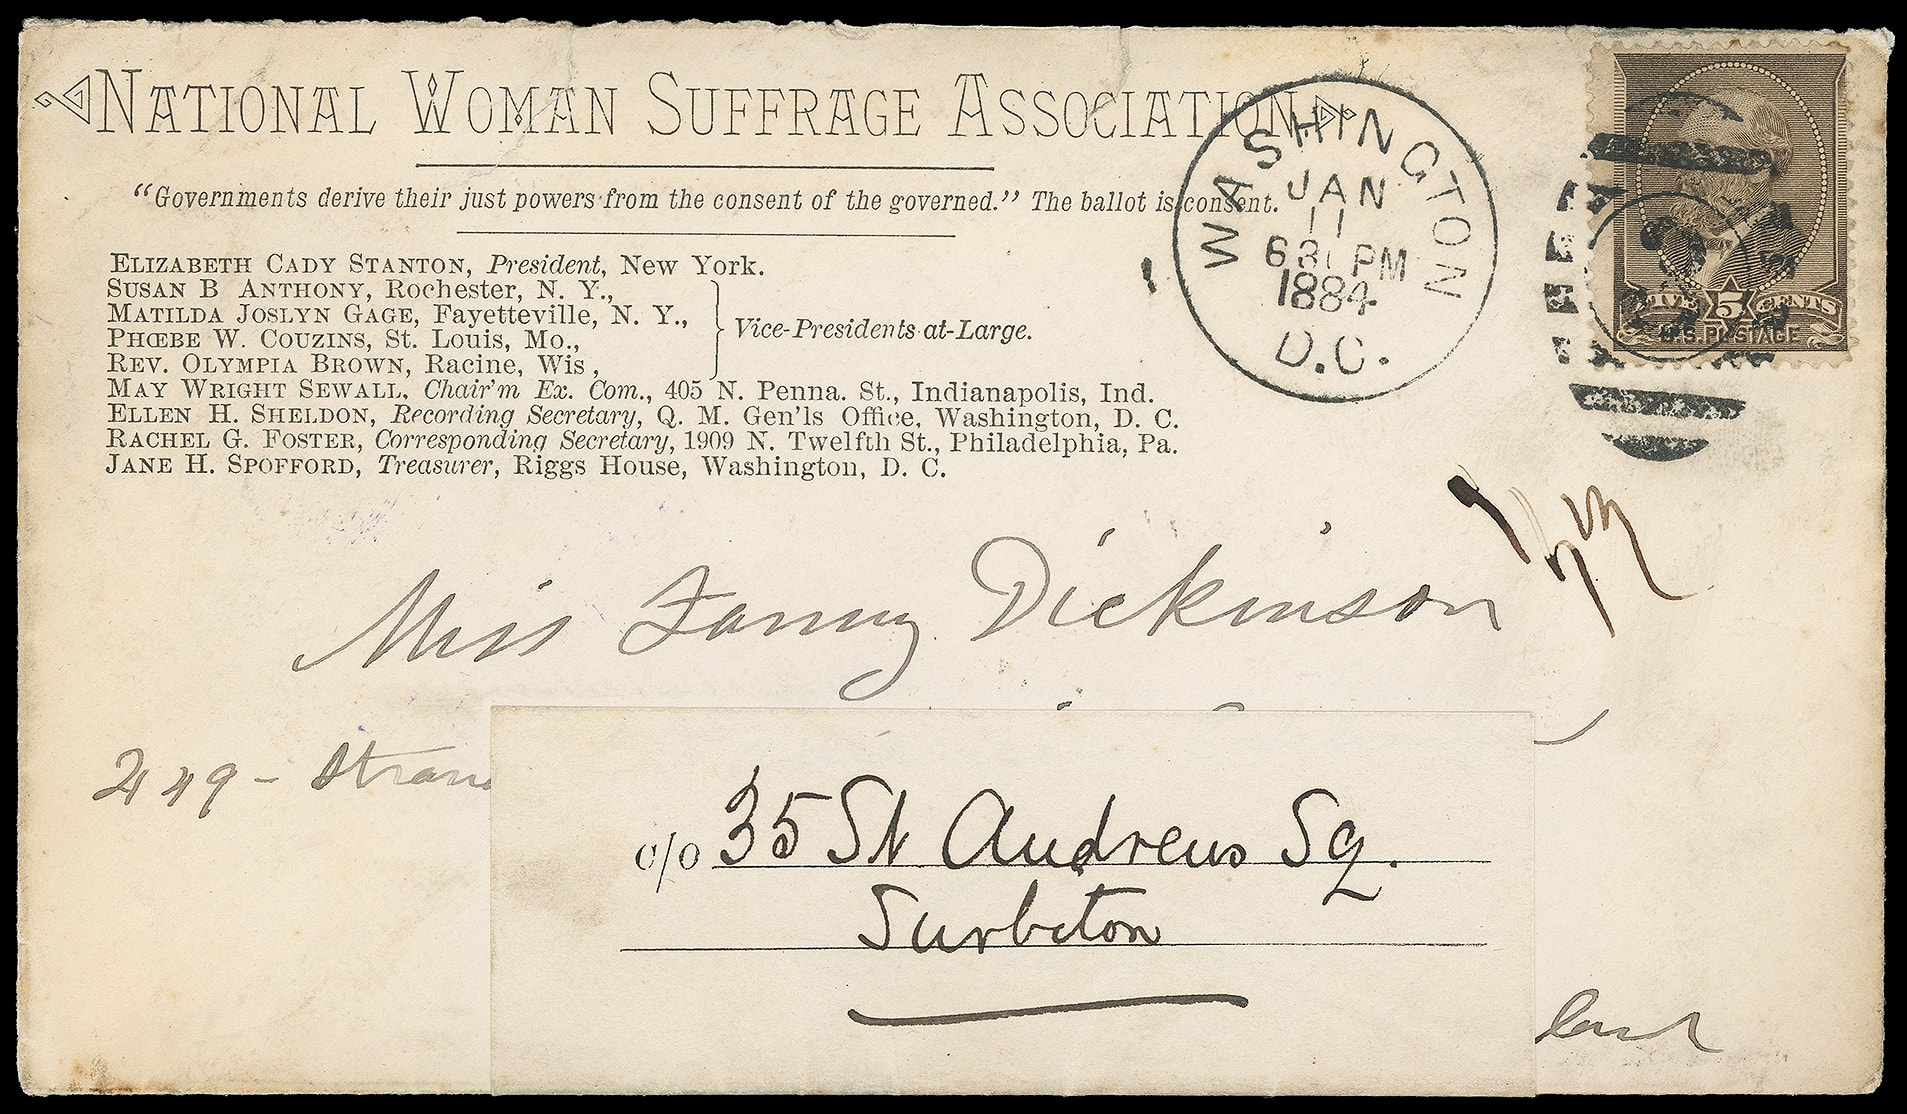 NATIONAL WOMAN SUFFRAGE ASSOCIATION
"Governments derive their just powers from the consent of the governed." The ballot is consent.
ELIZABETH CADY STANTON, President, New York.
SUSAN B ANTHONY, Rochester, N. Y.,
MATILDA JOSLYN GAGE, Fayetteville, N. Y.,
PHŒBE W. COUZINS, St. Louis, Mo.,
REV. OLYMPIA BROWN, Racine, Wis,
Vice-Presidents-at-Large.
MAY WRIGHT SEWALL, Chair'm Ex. Com., 405 N. Penna. St., Indianapolis, Ind.
ELLEN H. SHELDON, Recording Secretary, Q. M. Gen'ls Office, Washington, D. C.
RACHEL G. FOSTER, Corresponding Secretary, 1909 N. Twelfth St., Philadelphia, Pa.
JANE H. SPOFFORD, Treasurer, Riggs House, Washington, D. C.
WASHINGTON
JAN
11
PM
1884
D.C.
FIVE 5 CENTS
U.S. POSTAGE
Miss Fanny Dickinson
449 - Stran
c/o 35 St Andrews Sq.
Surbiton